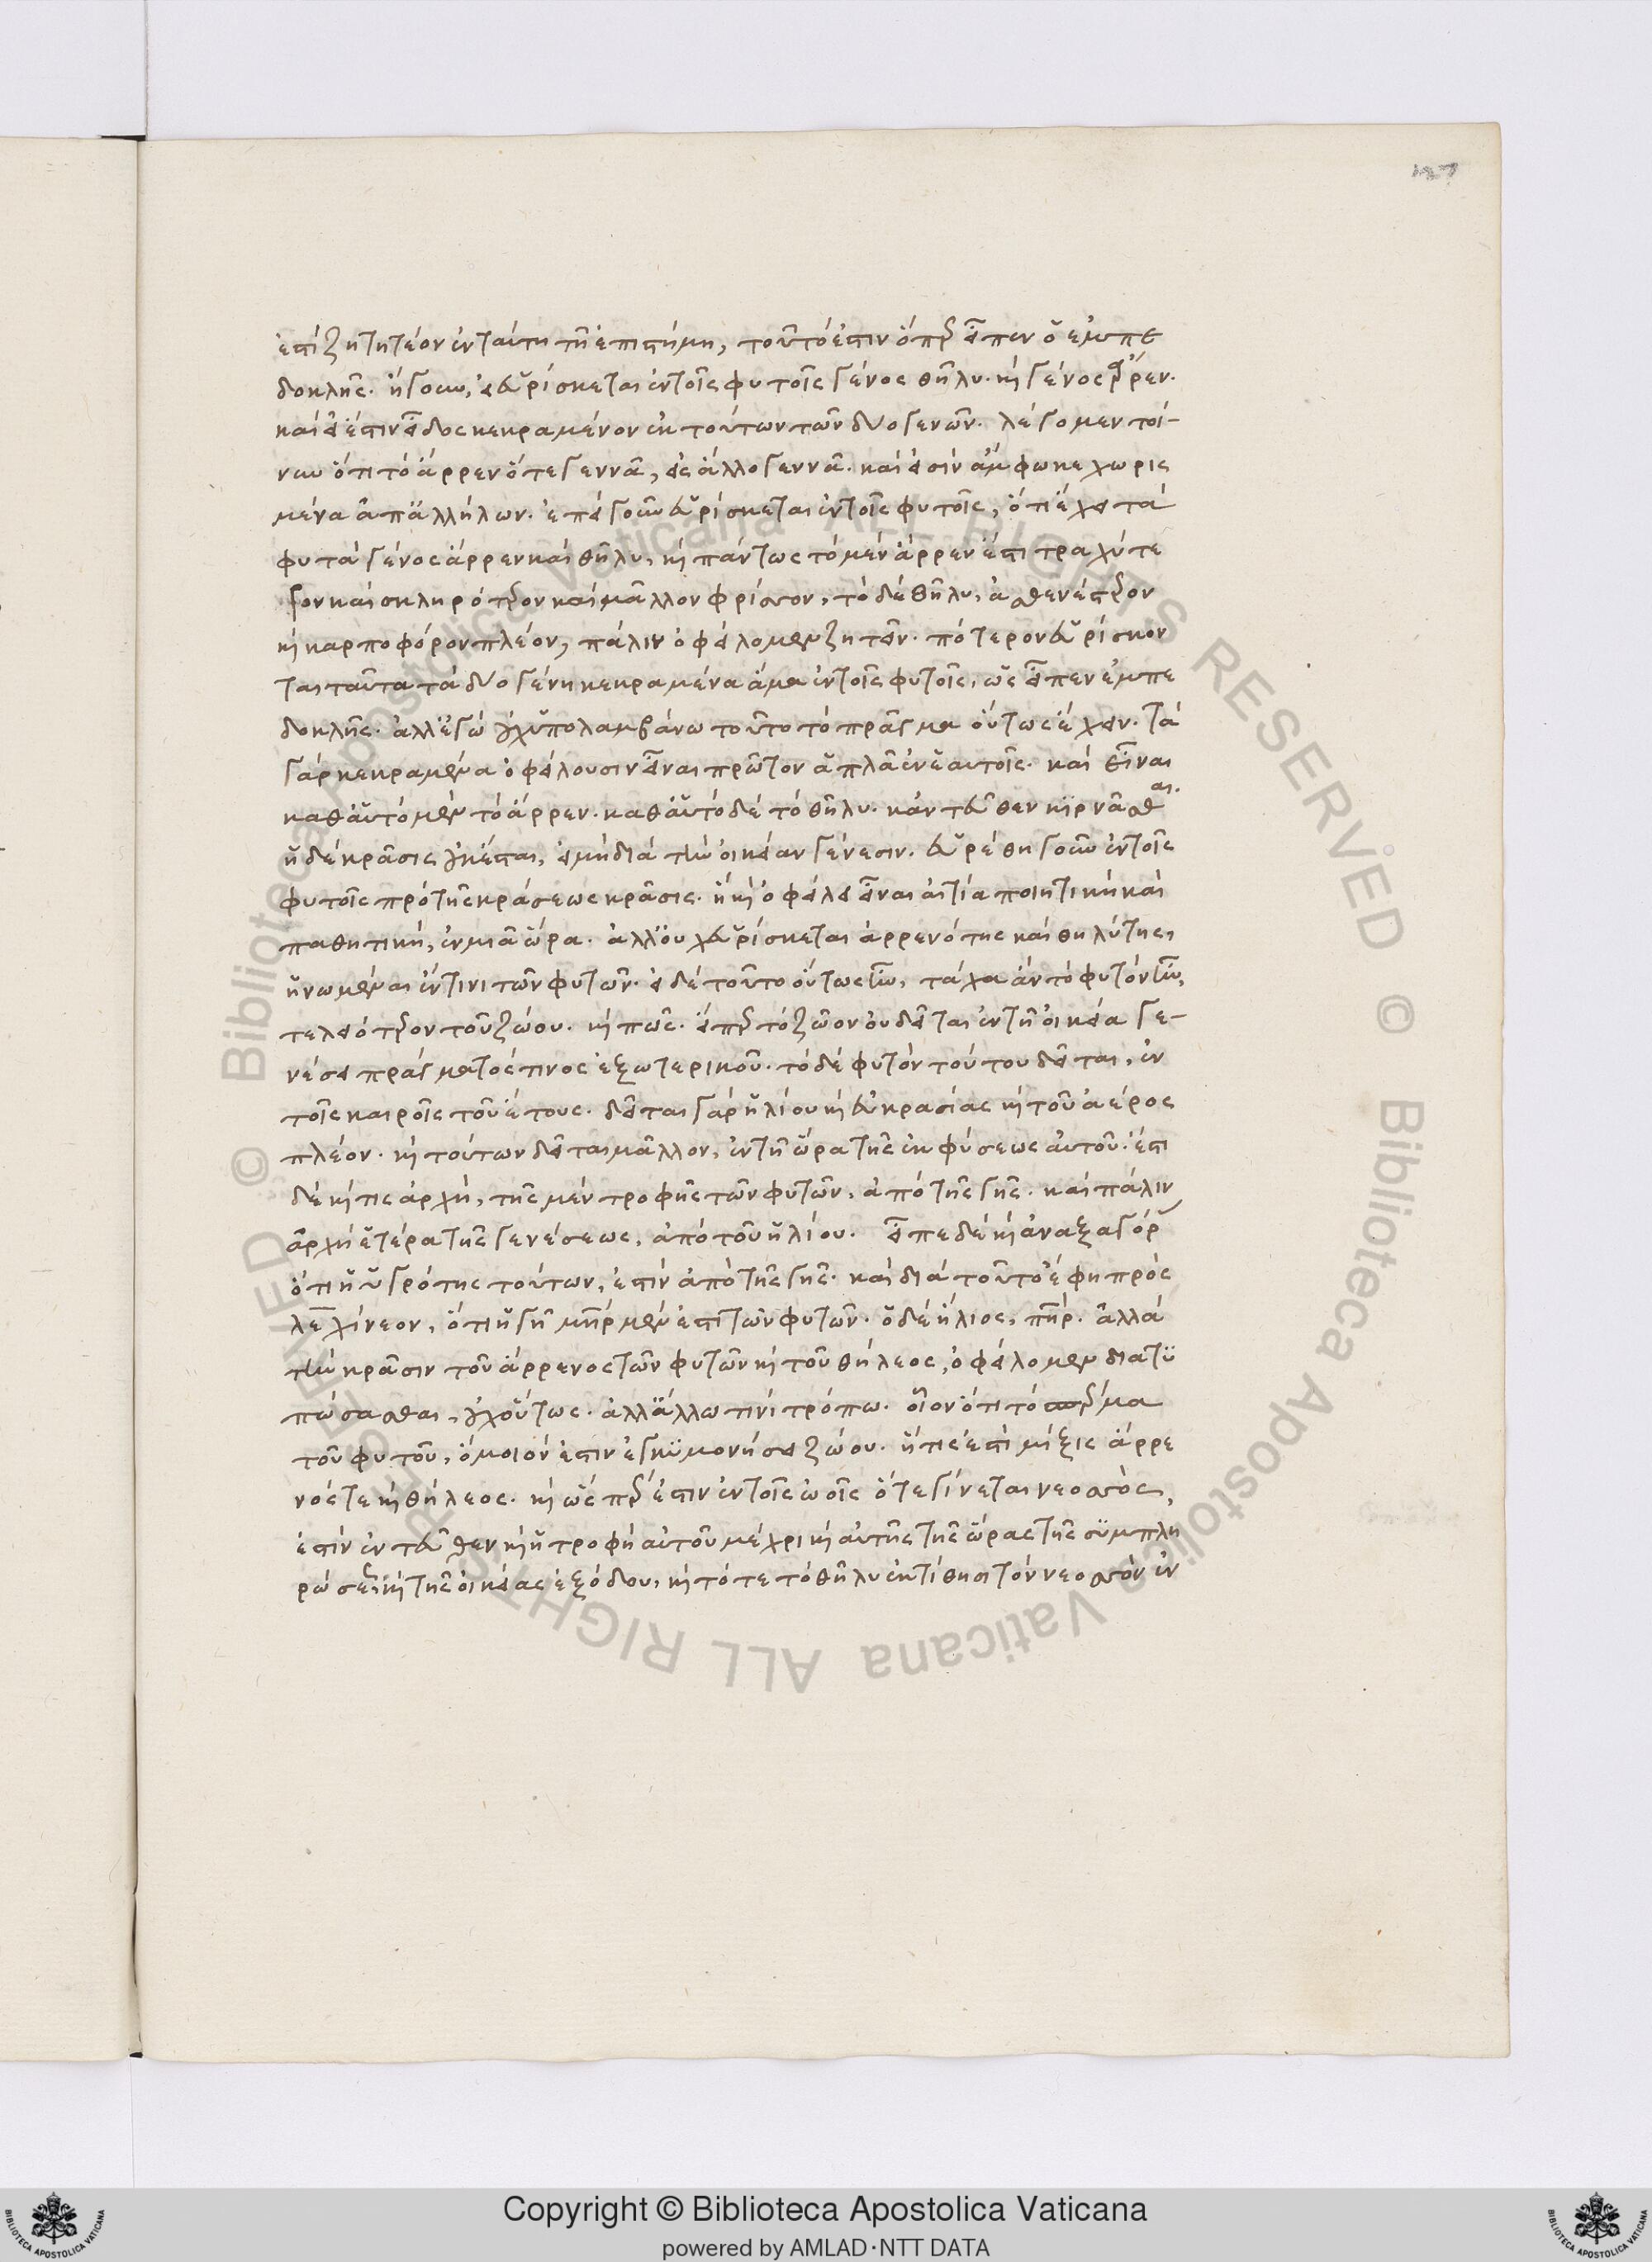 127
ἐστι ζητητέον ἐν ταύτη τῆ ἐπιστήμη, τοῦτό ἐστιν ὅπερ εἶπεν ὁ ἐμπε
δοκλῆς. ἤγουν, εἰ εὑρίσκεται ἐν τοῖς φυτοῖς γένος θῆλυ. καὶ γένος ἄρρεν.
καὶ εἰ ἔστιν εἶδος κεκραμένον ἐκ τούτων τῶν δύο γενῶν. λέγομεν τοί-
νυν ὅτι τὸ ἄρρεν ὅτε γεννᾶ, εἰς ἄλλο γεννᾶ. καὶ εἰσὶν ἄμφω κεχωρισ
μένα ἀπ' ἀλλήλων. ἐπεὶ γοῦν εὑρίσκεται ἐν τοῖς φυτοῖς, ὅτι ἔχει τὰ
φυτὰ γένος ἄρρεν καὶ θῆλυ, καὶ πάντως τὸ μὲν ἄρρεν ἐστὶ τραχύτε
ρον καὶ σκληρότερον καὶ μᾶλλον φρίσσον, τὸ δὲ θῆλυ, ἀσθενέστερον
καὶ καρποφόρον πλέον, πάλιν ὀφείλομεν ζητεῖν. πότερον εὑρίσκον
ται ταῦτα τὰ δύο γένη κεκραμένα ἅμα ἐν τοῖς φυτοῖς, ὡς εἶπεν ἐμπε
δοκλῆς. ἀλλ' ἐγὼ οὐχ ὑπολαμβάνω τοῦτο τὸ πρᾶγμα οὕτως ἔχειν. τὰ
γὰρ κεκραμένα ὀφείλουσιν εἶναι πρῶτον ἁπλᾶ ἐν ἑαυτοῖς. καὶ εἶναι
καθ' αὑτὸ μὲν τὸ ἄρρεν. καθ' αὑτὸ δὲ τὸ θῆλυ. κἀντεῦθεν κιρνᾶσθαι.
ἡ δὲ κρᾶσις οὐκ ἔσται, εἰ μὴ διὰ τὴν οἰκείαν γένεσιν. εὑρέθη γοῦν ἐν τοῖς
φυτοῖς πρὸ τῆς κράσεως κρᾶσις. ἣ καὶ ὀφείλει εἶναι αἰτία ποιητικὴ καὶ
παθητικὴ, ἐν μιᾶ ὥρα. ἀλλ' οὐχ εὑρίσκεται ἀρρενότης καὶ θηλύτης,
ἡνωμέναι ἔν τινι τῶν φυτῶν. εἰ δὲ τοῦτο οὕτως ἦν, τάχα ἂν τὸ φυτὸν ἦν,
τελειότερον τοῦ ζώου. καὶ πῶς. εἴπερ τὸ ζῶον οὐ δεῖται ἐν τῆ οἰκεία γε-
νέσει πράγματός τινος ἐξωτερικοῦ. τὸ δὲ φυτὸν τούτου δεῖται, ἐν
τοῖς καιροῖς τοῦ ἔτους. δεῖται γὰρ ἡλίου καὶ εὐκρασίας καὶ τοῦ ἀέρος
πλέον. καὶ τούτων δεῖται μᾶλλον, ἐν τῆ ὥρα τῆς ἐκφύσεως αὐτοῦ. ἔστι
δὲ καί τις ἀρχὴ, τῆς μὲν τροφῆς τῶν φυτῶν, ἀπὸ τῆς γῆς. καὶ πάλιν
ἀρχὴ ἑτέρα τῆς γενέσεως, ἀπὸ τοῦ ἡλίου. εἶπε δὲ καὶ ἀναξαγόρας
ὅτι ἡ ὑγρότης τούτων, ἐστὶν ἀπὸ τῆς γῆς. καὶ διὰ τοῦτο ἔφη πρὸς
λεχίνεον, ὅτι ἡ γῆ μήτηρ μέν ἐστι τῶν φυτῶν. ὁ δὲ ἥλιος, πατήρ. ἀλλὰ
τὴν κρᾶσιν τοῦ ἄρρενος τῶν φυτῶν καὶ τοῦ θήλεος, ὀφείλομεν διατυ
πώσασθαι, οὐχ οὕτως. ἀλλ' ἄλλω τινὶ τρόπω. οἷον ὅτι τὸ σπέρμα
τοῦ φυτοῦ, ὅμοιόν ἐστιν ἐγκυμονήσει ζώου. ἥτις ἐστὶ μῖξις ἄρρε
νός τε καὶ θήλεος. καὶ ὥσπερ ἔστιν ἐν τοῖς ὠοῖς ὅτε γίνεται νεοσσὸς,
ἐστὶν ἐντεῦθεν καὶ ἡ τροφὴ αὐτοῦ μέχρι καὶ αὐτῆς τῆς ὥρας τῆς συμπλη
ρώσεως καὶ τῆς οἰκείας ἐξόδου, καὶ τότε τὸ θῆλυ ἐκτίθησι τὸν νεοσσὸν ἐν
Copyright © Biblioteca Apostolica Vaticana
powered by AMLAD·NTT DATA